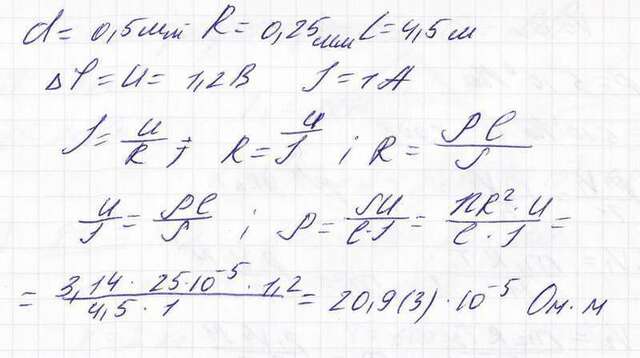 d = 0,5мм R = 0,25мм l = 4,5м
Δφ = U = 1,2В J = 1А
J = U/R ; R = U/J ; R = ρl/S
U/J = ρl/S ; ρ = SU/l·J = πR²·U/l·J =
= 3,14·25·10⁻⁵·1,2/4,5·1 = 20,9(3)·10⁻⁵ Ом·м